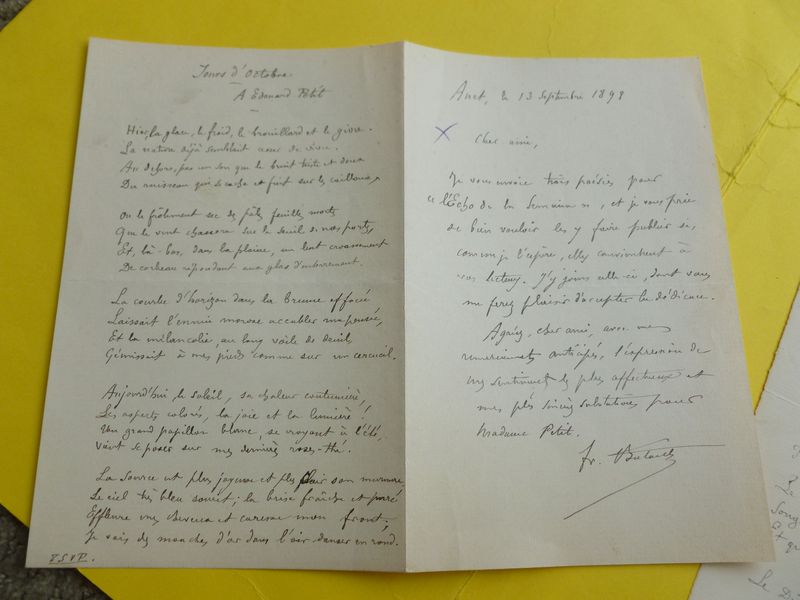 Jours d'Octobre
A Edouard Petit
Hier, la glace, le froid, le brouillard et le givre.
La nature déjà semblait lasse de vivre.
Au dehors, pas un son que le bruit triste et doux
Du ruisseau qui se cache et fuit sur les cailloux,
Ou le frôlement sec des pâles feuilles mortes
Que le vent chassera sur le seuil de nos portes,
Et, là-bas, dans la plaine, un lent croassement
De corbeau répondant aux glas d'enterrement.
La courbe d'horizon dans la brume effacée
Laissait l'ennui morose accabler ma pensée,
Et la mélancolie, au long voile de deuil
Gémissait à mes pieds comme sur un cercueil.
Aujourd'hui, le soleil, sa chaleur coutumière,
Les aspects colorés, la joie et la lumière !
Un grand papillon blanc, se croyant à l'été,
Vient se poser sur mes dernières roses-thé.
La source est plus joyeuse et plus clair son murmure
Le ciel très bleu sourit ; la brise fraîche et
Effleure mes cheveux et caresse mon front ;
Je vois des mouches d'or dans l'air danser en rond.
T.S.V.P.
Anet, le 13 Septembre 1898
X
Cher ami,
Je vous envoie trois poésies pour
« l'Écho de la Semaine », et je vous prie
de bien vouloir les y faire publier si,
comme je l'espère, elles conviennent à
vos lecteurs. J'y joins celle-ci, dont vous
me ferez plaisir d'accepter la dédicace.
Agréez, cher ami, avec mes
remerciements anticipés, l'expression de
mes sentiments les plus affectueux et
mes plus sincères salutations pour
Madame Petit.
Fr.